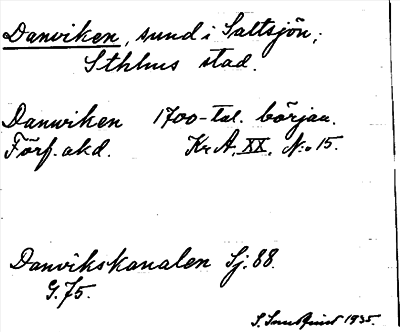 Danviken, sund i Saltsjön;
Sthlms stad.
Danwiken 1700-tal. början.
Förf. akd. Kr.A. XX. No 15.
Danvikskanalen Sj. 88.
G. 75.
S. 1935.